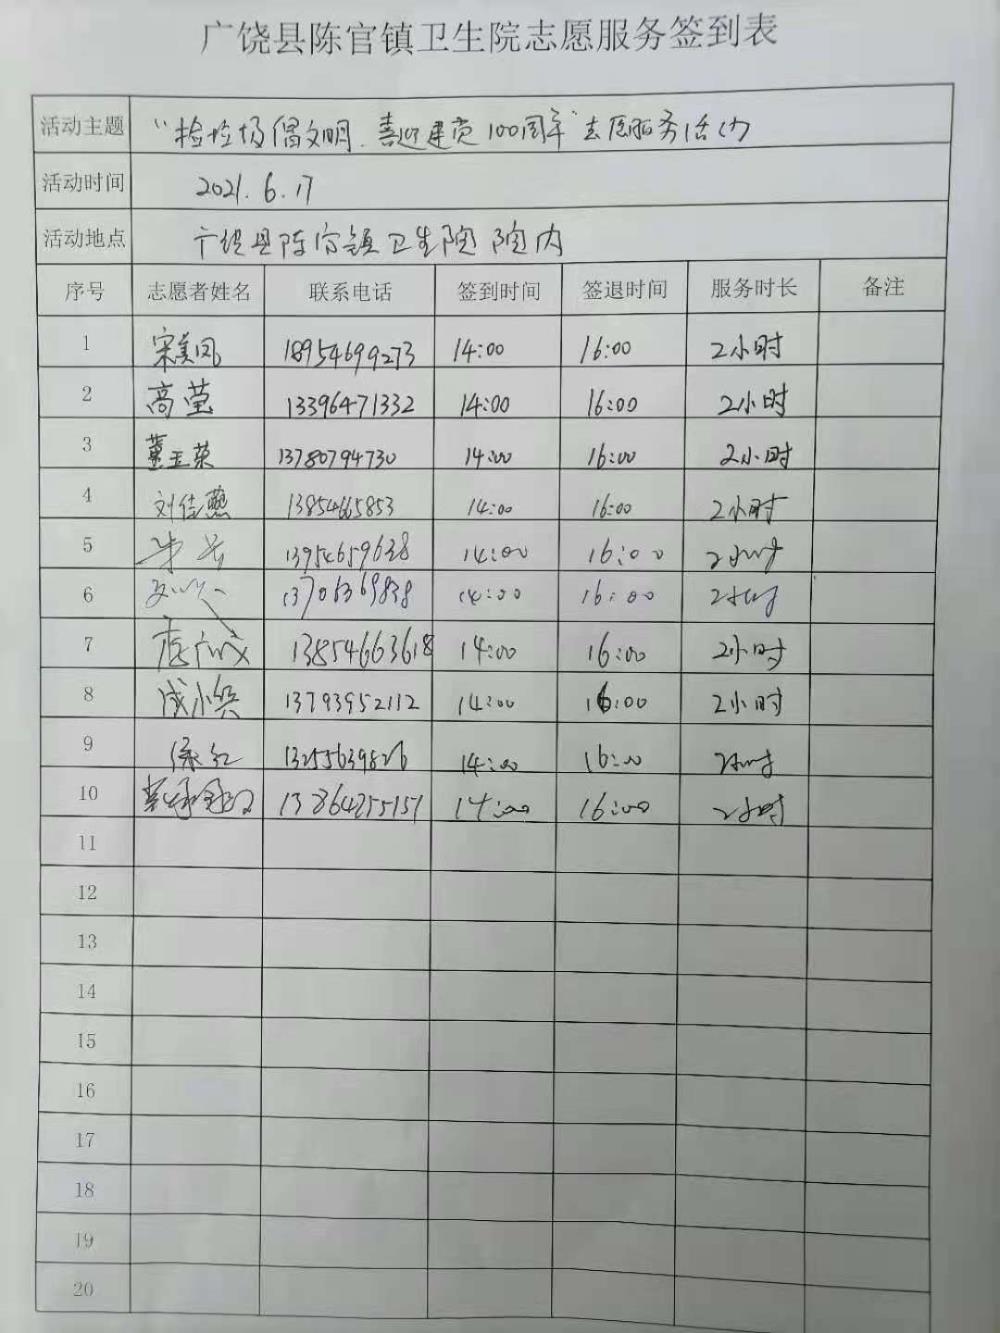 广饶县陈官镇卫生院志愿服务签到表
活动主题 “捡垃圾倡文明、喜迎建党100周年”志愿服务活动
活动时间 2021.6.17
活动地点 广饶县陈官镇卫生院院内
序号 志愿者姓名 联系电话 签到时间 签退时间 服务时长 备注
1 宋美凤 18954699273 14:00 16:00 2小时
2 高莹 13396471332 14:00 16:00 2小时
3 董玉荣 13780794730 14:00 16:00 2小时
4 刘佳燕 1385465853 14:00 16:00 2小时
5 13954659638 14:00 16:00 2小时
6 14:00 16:00 2小时
7 13854663618 14:00 16:00 2小时
8 成小兵 13793952112 14:00 16:00 2小时
9 13255639826 14:00 16:00 2小时
10 13864755157 14:00 16:00 2小时
11
12
13
14
15
16
17
18
19
20